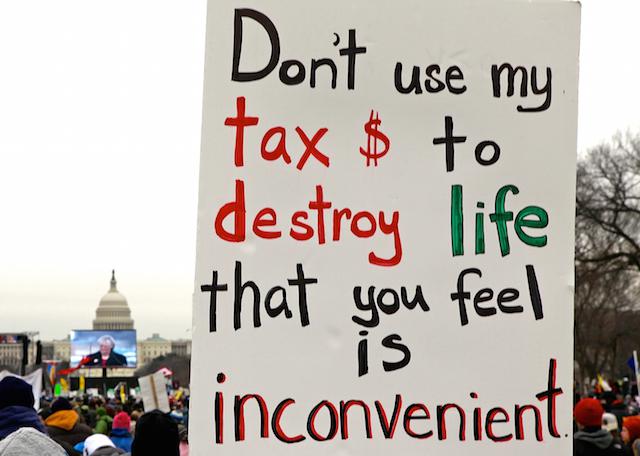 Don't use my
tax $ to
destroy life
that you feel
is
inconvenient.